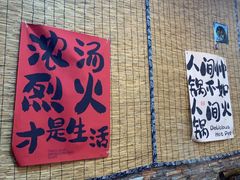 浓汤
烈火
才是生活
人间帅
锅不如
人间火
锅
Delicious
Hot Pot